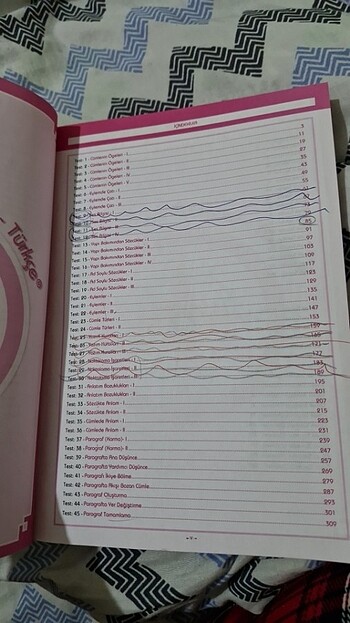 İÇİNDEKİLER
Test: 1 - Cümlenin Ögeleri - I 5
Test: 2 - Cümlenin Ögeleri - II 11
Test: 3 - Cümlenin Ögeleri - III 19
Test: 4 - Cümlenin Ögeleri - IV 27
Test: 5 - Cümlenin Ögeleri - V 35
Test: 6 - Eylemde Çatı - I 43
Test: 7 - Eylemde Çatı - II 49
Test: 8 - Eylemde Çatı - III 55
Test: 9 - Ses Bilgisi - I
Test: 10 - Ses Bilgisi - II
Test: 11 - Ses Bilgisi - III 79
Test: 12 - Ses Bilgisi - IV 85
Test: 13 - Yapı Bakımından Sözcükler - I 91
Test: 14 - Yapı Bakımından Sözcükler - II 97
Test: 15 - Yapı Bakımından Sözcükler - III 103
Test: 16 - Yapı Bakımından Sözcükler - IV 109
Test: 17 - Ad Soylu Sözcükler - I 117
Test: 18 - Ad Soylu Sözcükler - II 123
Test: 19 - Ad Soylu Sözcükler - III 129
Test: 20 - Eylemler - I 135
Test: 21 - Eylemler - II 141
Test: 22 - Eylemler - III 147
Test: 23 - Cümle Türleri - I 153
Test: 24 - Cümle Türleri - II 159
Test: 25 - Yazım Kuralları - I 165
Test: 26 - Yazım Kuralları - II 171
Test: 27 - Yazım Kuralları - III 177
Test: 28 - Noktalama İşaretleri - I 183
Test: 29 - Noktalama İşaretleri - II 189
Test: 30 - Noktalama İşaretleri - III 195
Test: 31 - Anlatım Bozuklukları - I 201
Test: 32 - Anlatım Bozuklukları - II 207
Test: 33 - Sözcükte Anlam - I 215
Test: 34 - Sözcükte Anlam - II 223
Test: 35 - Cümlede Anlam - I 231
Test: 36 - Cümlede Anlam - II 239
Test: 37 - Paragraf (Karma) - I 247
Test: 38 - Paragraf (Karma) - II 257
Test: 39 - Paragrafta Ana Düşünce 269
Test: 40 - Paragrafta Yardımcı Düşünce 279
Test: 41 - Paragrafı İkiye Bölme 287
Test: 42 - Paragrafta Akışı Bozan Cümle 293
Test: 43 - Paragraf Oluşturma 301
Test: 44 - Paragrafta Yer Değiştirme 309
Test: 45 - Paragraf Tamamlama
- Türkçe